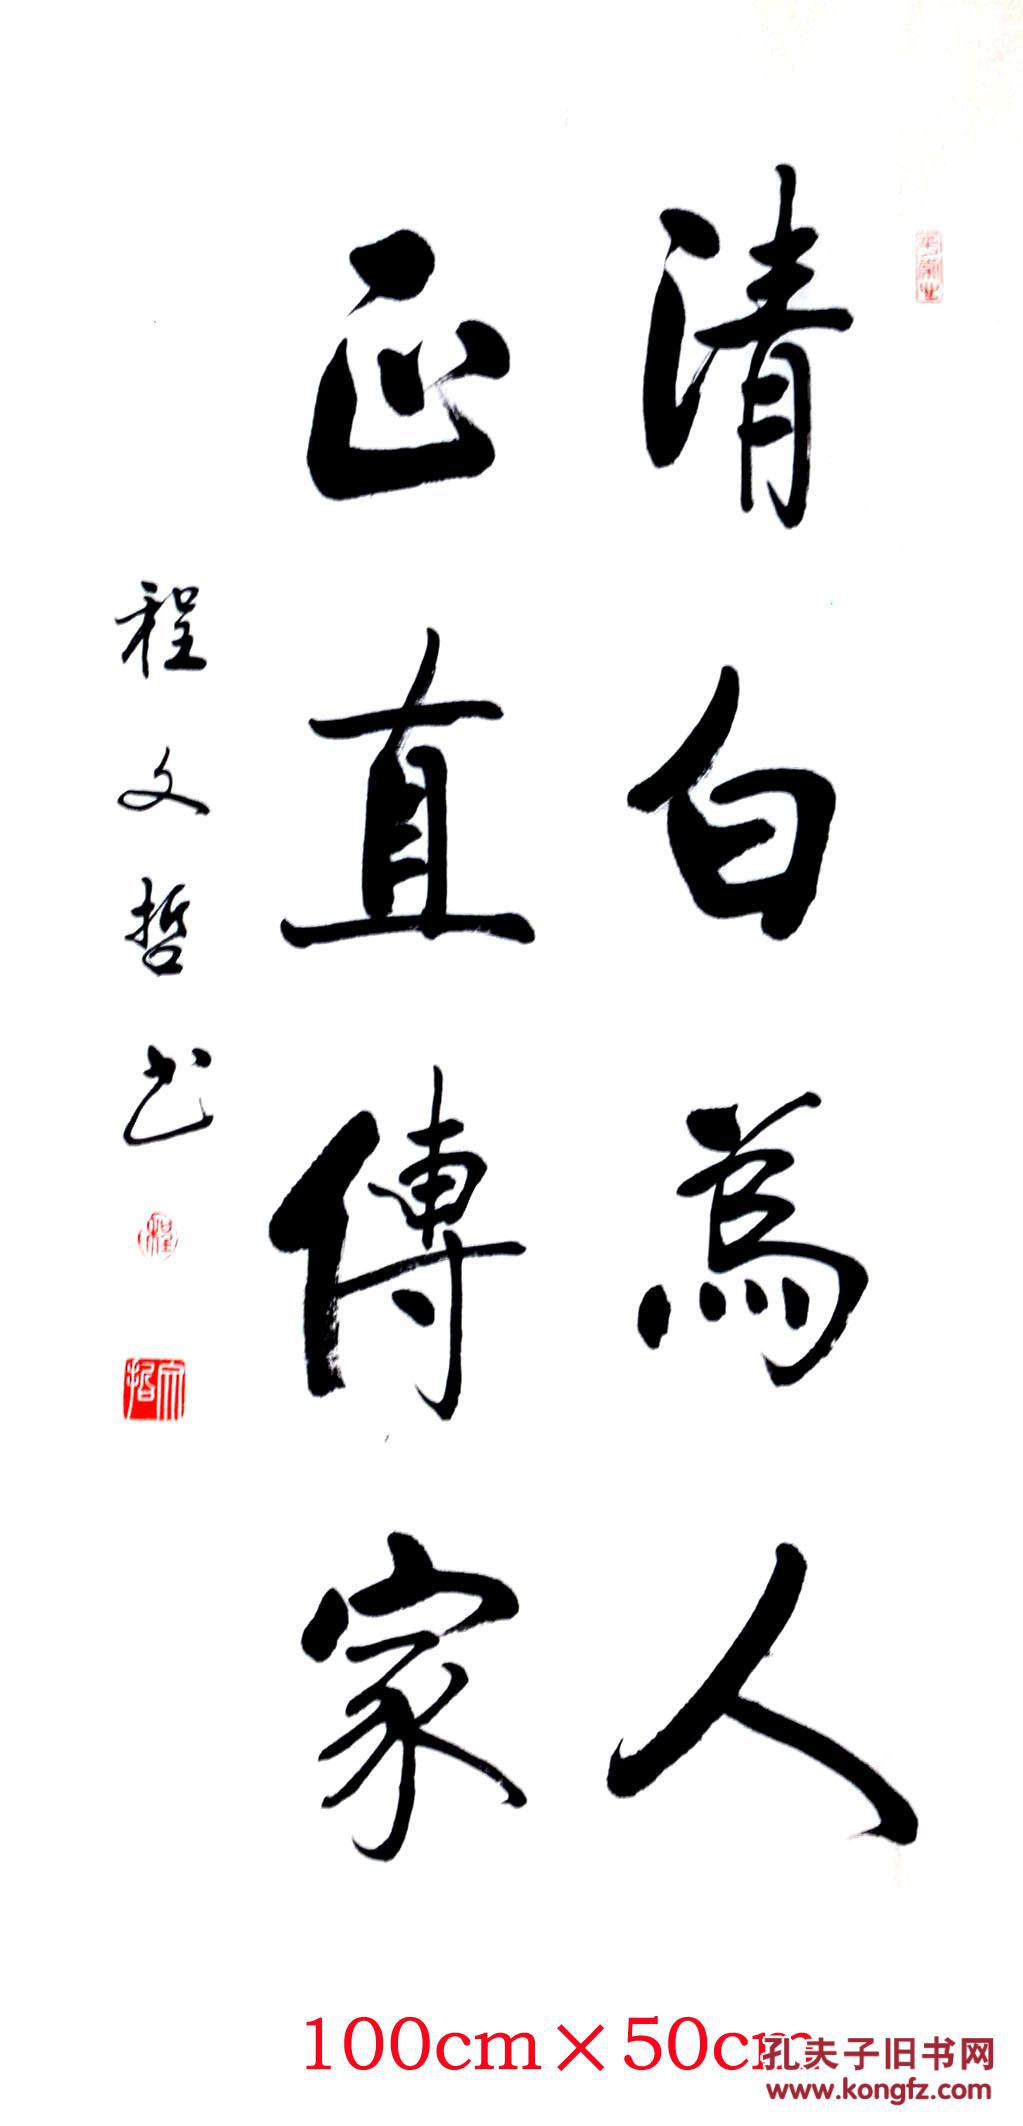 清白為人
正直傳家
程文哲书
程
文哲
100cm×50cm
孔夫子旧书网
www.kongfz.com